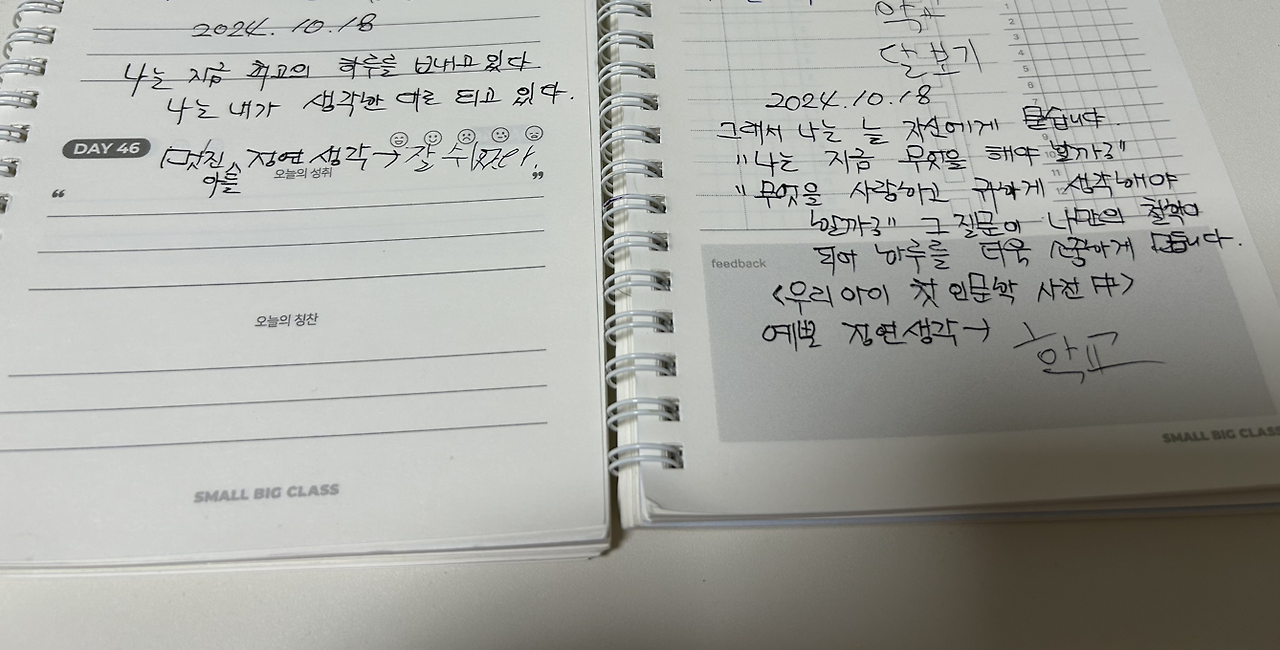 2024. 10. 18
나는 지금 최고의 하루를 보내고 있다
나는 내가 생각한 대로 되고 있다.
DAY 46
멋진 아들 장연 생각→ 잘 쉬었다.
오늘의 성취
“ ”
오늘의 칭찬
SMALL BIG CLASS
학교
달 보기
1
2
3
4
5
6
7
9
10
11
12
2024. 10. 18
그래서 나는 늘 자신에게 묻습니다.
"나는 지금 무엇을 해야 할까?"
"무엇을 사랑하고 귀하게 생각해야
할까?" 그 질문이 나만의 철학이
되어 하루를 더욱 소중하게 만듭니다.
feedback
<우리아이 첫 인문학 사전 中>
예쁜 장연생각→ 학교
SMALL BIG CLASS